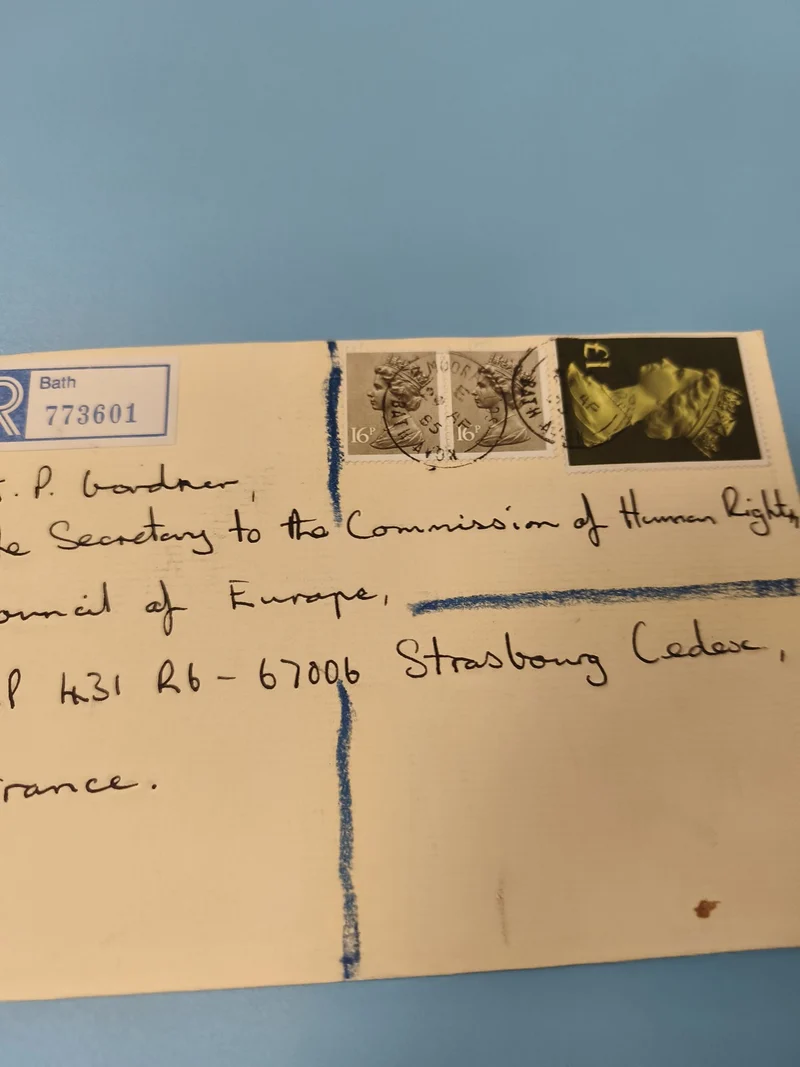 R
Bath
773601
16P
16P
£1
MOOR
E
AP
85
BATH AVON
BATH A
AP
. P. Gardner,
e Secretary to the Commission of Human Rights,
ouncil of Europe,
P 431 R6 - 67006 Strasbourg Cedex,
rance.